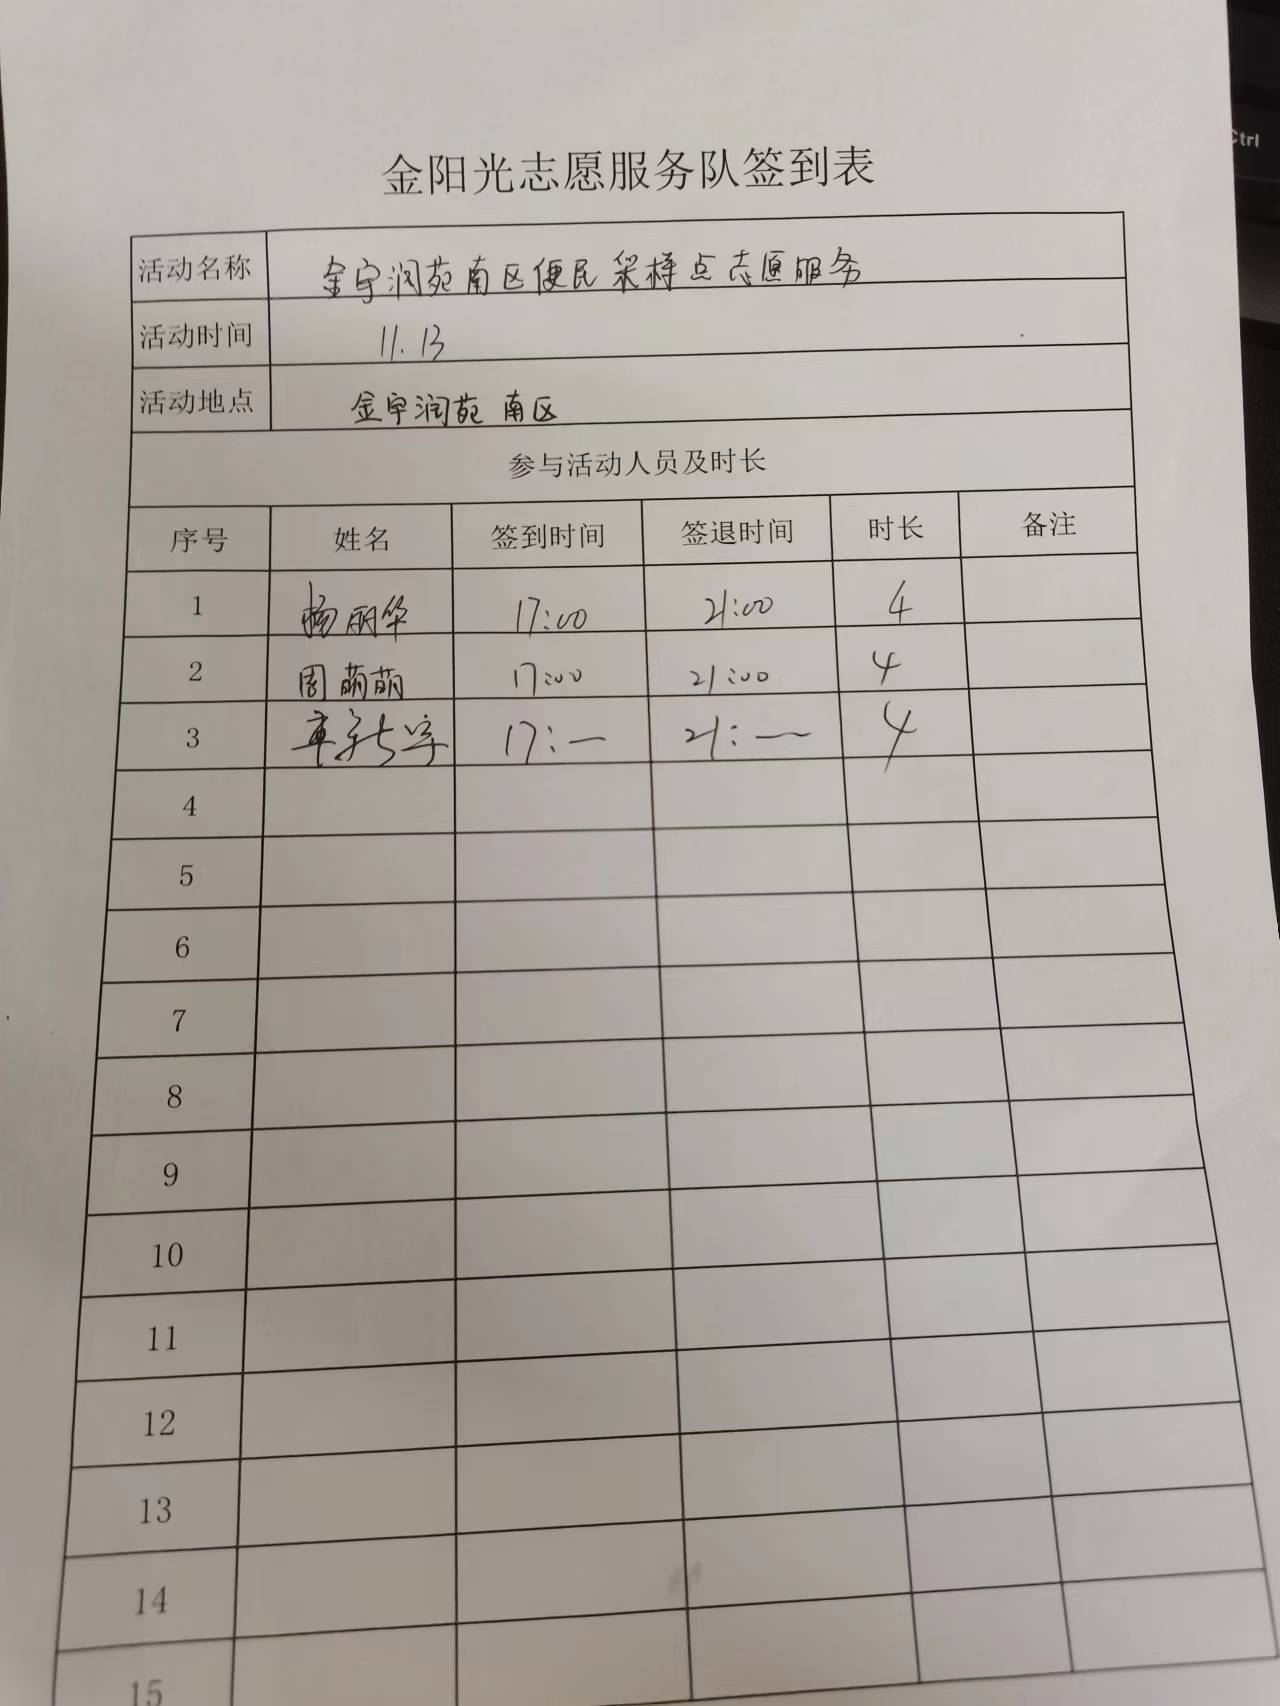 Ctrl
金阳光志愿服务队签到表
活动名称 金宇润苑南区便民采样点志愿服务
活动时间 11.13
活动地点 金宇润苑 南区
参与活动人员及时长
序号 姓名 签到时间 签退时间 时长 备注
1 杨丽华 17:00 21:00 4
2 周萌萌 17:00 21:00 4
3 17:— 21:— 4
4
5
6
7
8
9
10
11
12
13
14
15